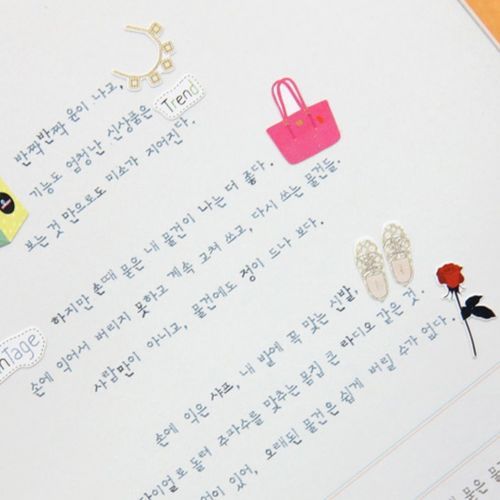 반짝반짝 윤이 나고,
기능도 엄청난 신상품은 Trend
보는 것 만으로도 미소가 지어진다.
하지만 손때 묻은 내 물건이 나는 더 좋다.
손에 익어서 버리지 못하고 계속 고쳐 쓰고, 다시 쓰는 물건들.
사람만이 아니고, 물건에도 정이 드나 보다.
손에 익은 샤프, 내 발에 꼭 맞는 신발,
다이얼로 돌려 주파수를 맞추는 몸집 큰 라디오 같은 것.
있어, 오래된 물건은 쉽게 버릴 수가 없다.